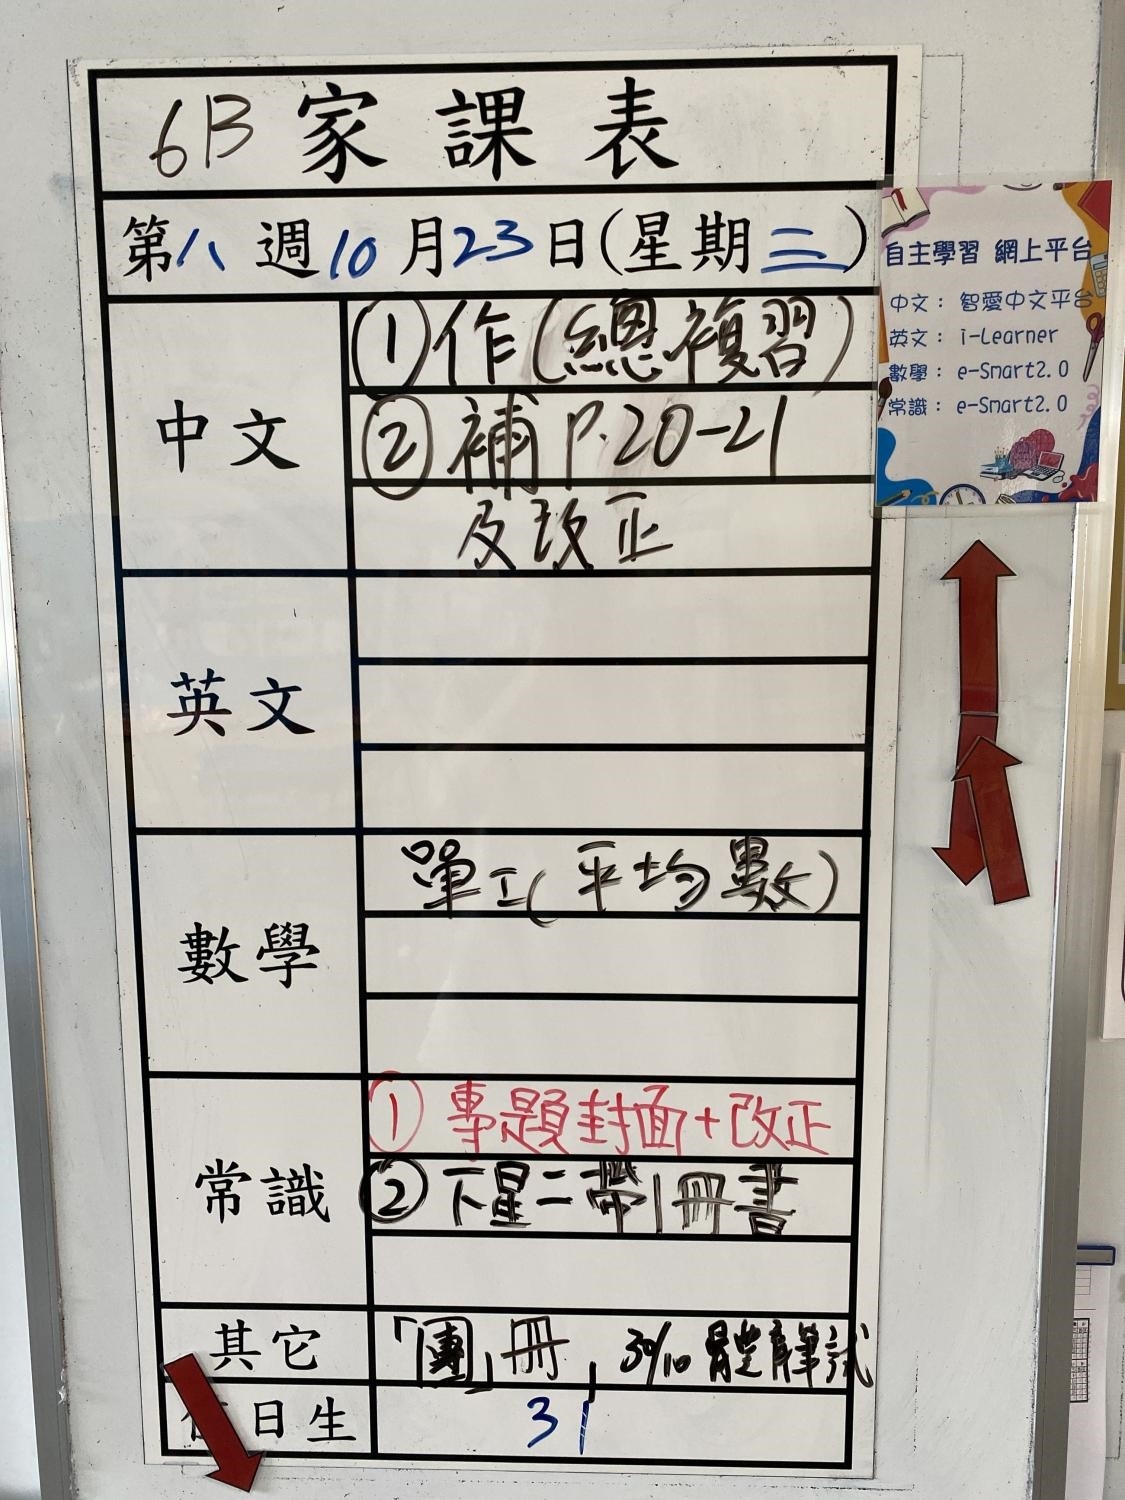 6B 家課表
第八週10月23日(星期三)
自主學習 網上平台
中文：智愛中文平台
英文：i-Learner
數學：e-Smart2.0
常識：e-Smart2.0
中文
①作(總複習)
②補 P.20-21
及改正
英文
數學
單工(平均數)
常識
①專題封面+改正
②下星二帶1冊書
其它
「團」冊, 30/10 體育筆試
日生
31